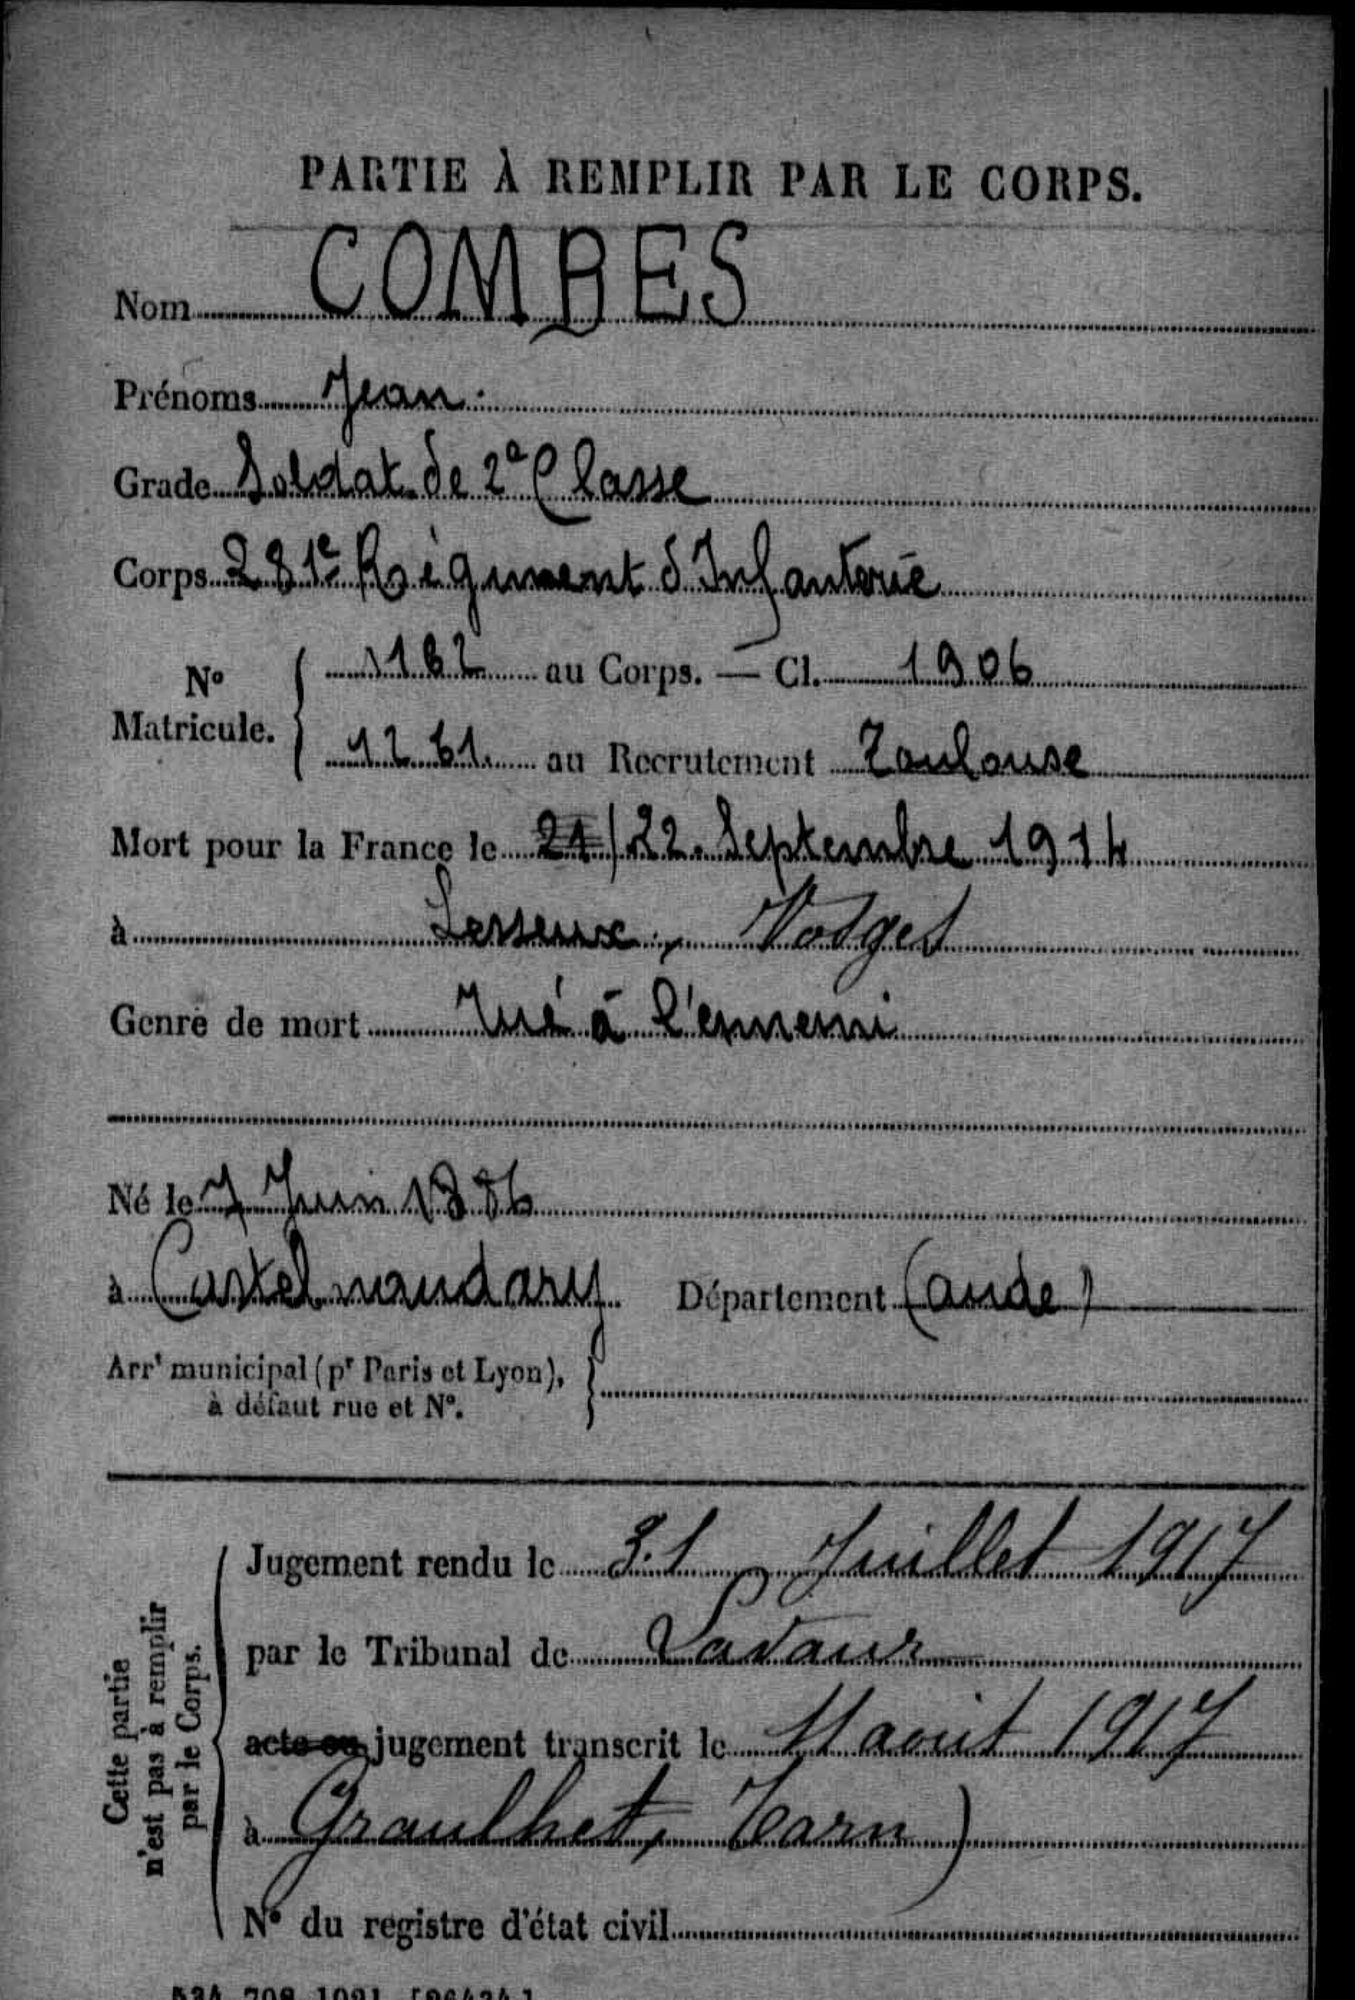 PARTIE À REMPLIR PAR LE CORPS.
Nom COMBES
Prénoms Jean.
Grade Soldat de 2e Classe
Corps 281e Régiment d'Infanterie
N° Matricule. { au Corps. — Cl. 1906
1261 au Recrutement Toulouse
Mort pour la France le 21/22 Septembre 1914
à Lesseux, Vosges
Genre de mort Tué à l'ennemi
Né le 7 Juin 1886
à Castelnaudary Département (Aude)
Arrt municipal (pr Paris et Lyon),
à défaut rue et N°.
Cette partie
n'est pas à remplir
par le Corps.
Jugement rendu le 31 Juillet 1917
par le Tribunal de Lavaur
acte ou jugement transcrit le 11 août 1917
à Graulhet, Tarn)
N° du registre d'état civil
534 708 1921 [26434]